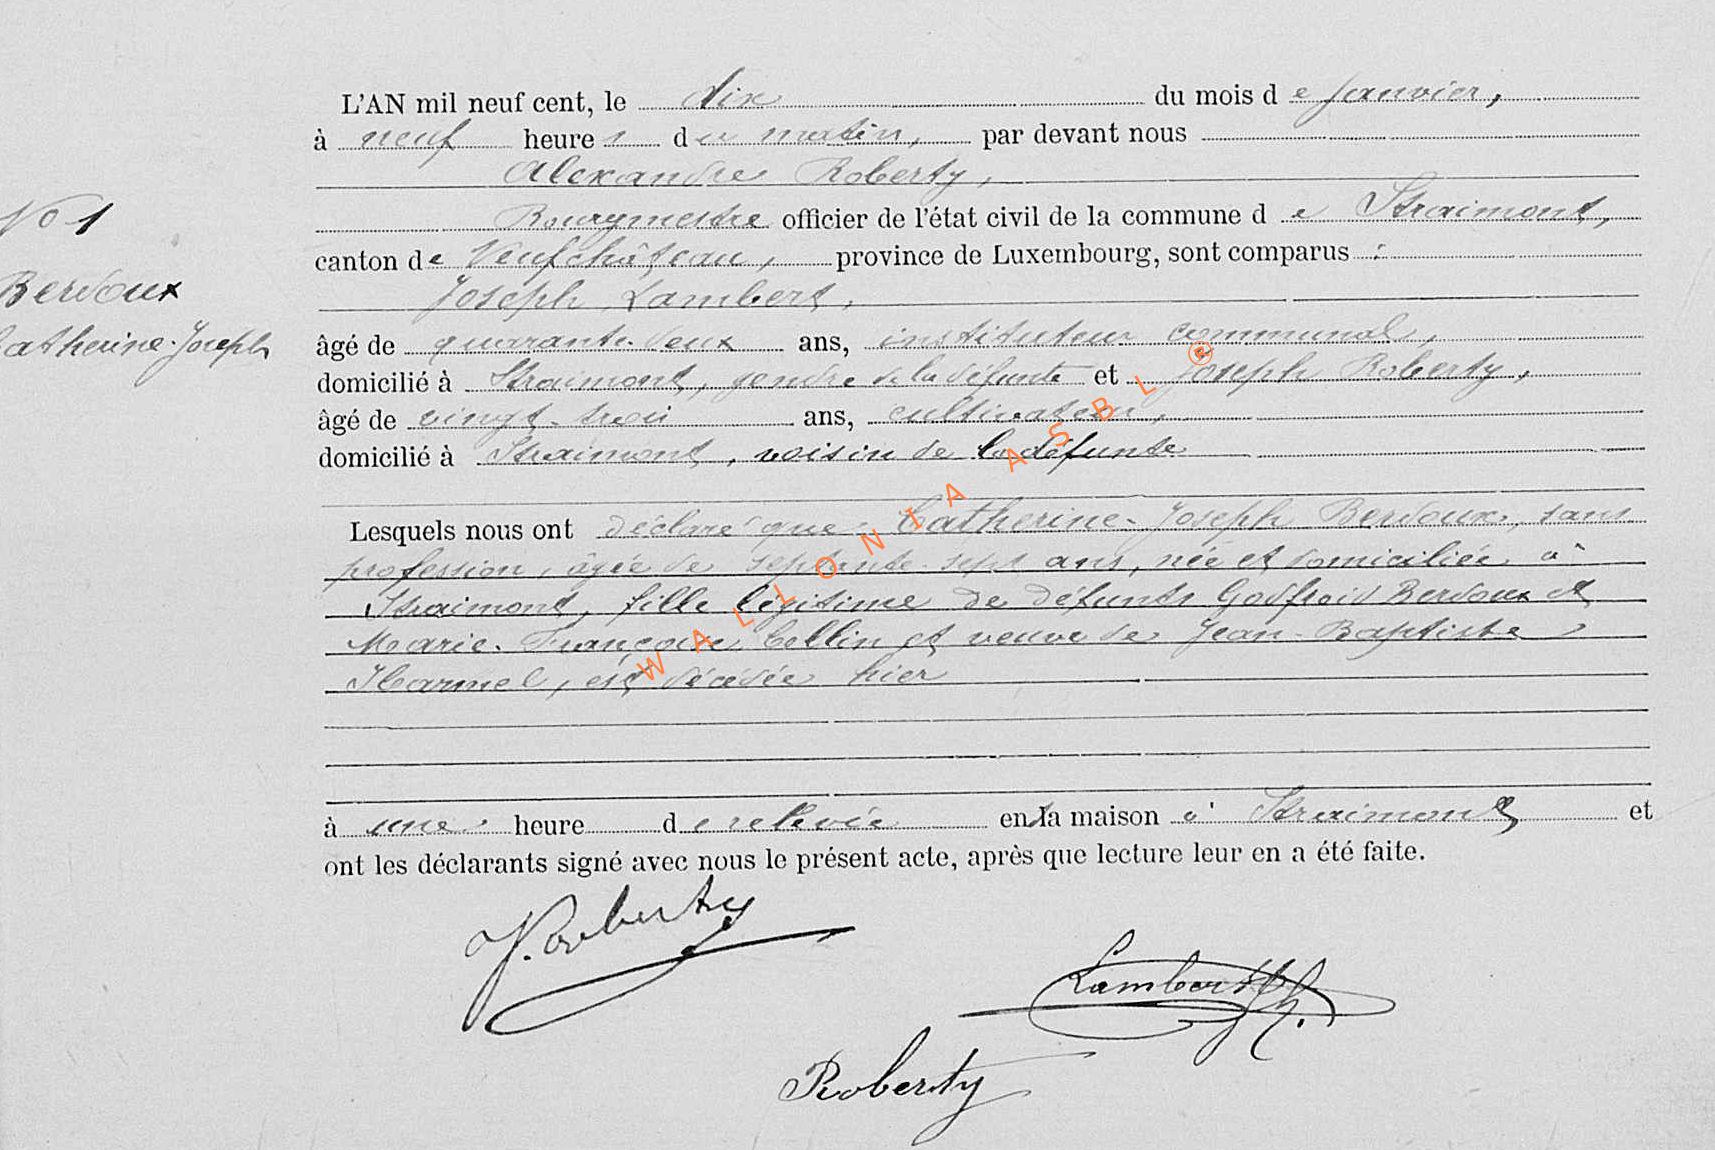 L'AN mil neuf cent, le dix du mois de Janvier,
à neuf heures du matin, par devant nous
Alexandre Roberty,
No 1
Bourgmestre officier de l'état civil de la commune de Straimont,
canton de Neufchâteau, province de Luxembourg, sont comparus :
Berdoux
Joseph Lambert,
Catherine-Joseph
âgé de quarante-deux ans, instituteur communal,
domicilié à Straimont, gendre de la défunte et Joseph Roberty,
âgé de vingt-trois ans, cultivateur,
domicilié à Straimont, voisin de la défunte
Lesquels nous ont déclaré que Catherine-Joseph Berdoux, sans
profession, âgée de septante-sept ans, née et domiciliée à
Straimont, fille légitime de défunts Godfroid Berdoux et
Marie-Françoise Collin et veuve de Jean-Baptiste
Harmel, est décédée hier
à une heure de relevée en la maison à Straimont et
ont les déclarants signé avec nous le présent acte, après que lecture leur en a été faite.
J. Roberty
Lambert Jh.
Roberty
WALLONIA ASBL ®